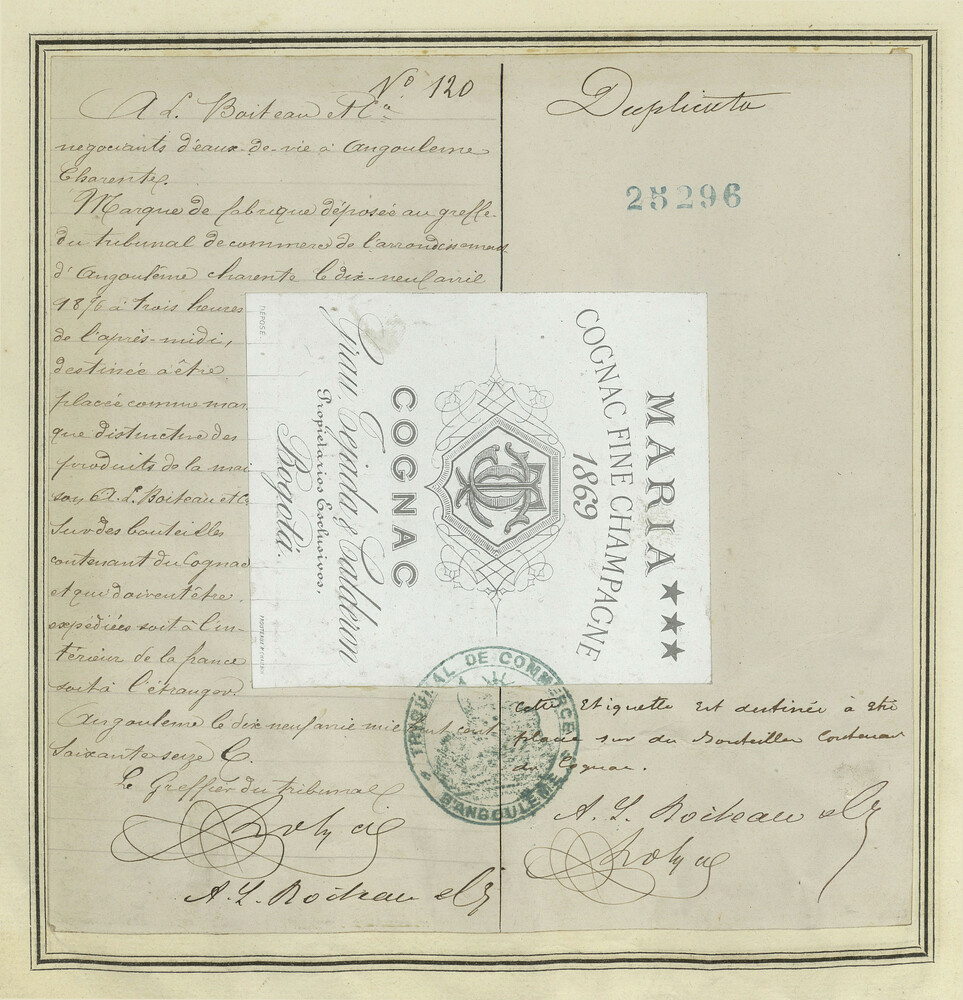 Nº 120
A L. Boiteau et Cie
negociants d'eaux-de-vie à Angouleme
Charente.
Marque de fabrique déposée au greffe
du tribunal de commerce de l'arrondissement
d'Angoulême charente le dix-neuf avril
1876 à trois heures
de l'après-midi,
destinée à être
placée comme mar
que distinctive des
produits de la mai
son A. L. Boiteau et Cie
sur des bouteilles
contenant du Cognac
et qui doivent être
expédiées soit à l'in-
térieur de la france
soit à l'étranger
Angouleme le dix neuf avril mil huit cent
soixante seize
Le Greffier du tribunal
A. L. Boiteau et Cie
Duplicata
25296
MARIA ★★★
COGNAC FINE CHAMPAGNE
1869
COGNAC
Grau, Tejada & Calderon
Propietarios Esclusivos.
Bogotá.
DÉPOSÉ
TRIBUNAL DE COMMERCE
D'ANGOULÊME
Cette Etiquette est destinée à être
placée sur des Bouteilles Contenant
du Cognac.
A. L. Boiteau et Cie